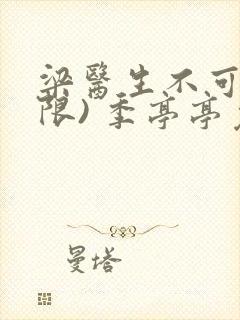 梁醫生不可
限) 季亭亭
曼塔